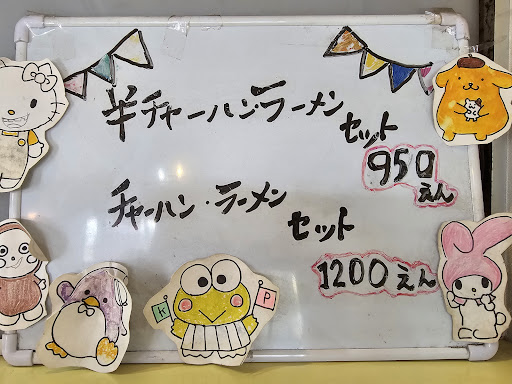 半チャーハン・ラーメン
セット
950
えん
チャーハン・ラーメン
セット
1200えん
K P